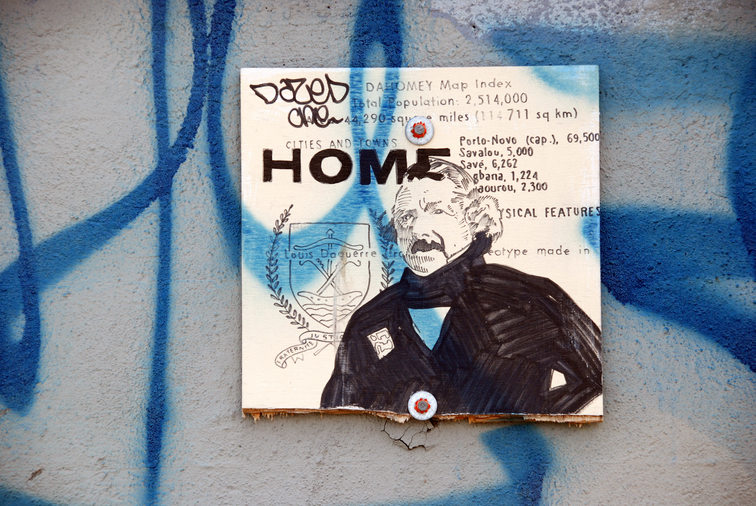 DAZED
ONE
DAHOMEY Map Index
Total Population: 2,514,000
44,290 square miles (114,711 sq km)
CITIES AND TOWNS
HOME
Porto-Novo (cap.), 69,500
Savalou, 5,000
Savé, 6,262
gbana, 1,224
aourou, 2,300
YSICAL FEATURES
Louis Daguerre (fro
eotype made in
FRATERNITE
JUSTIC